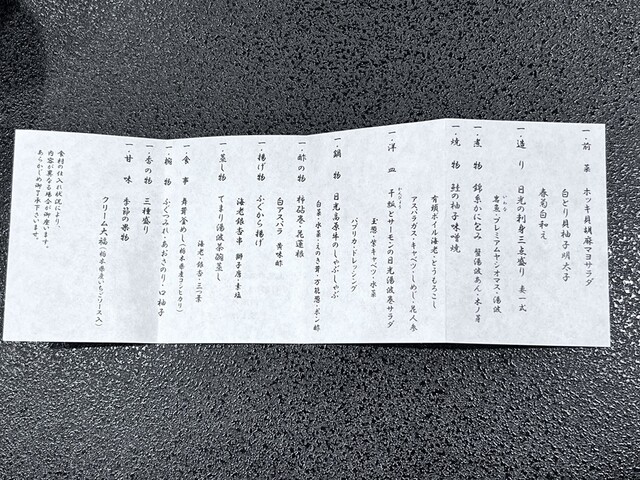 一.前 菜 ホッキ貝胡麻マヨサラダ
白とり貝柚子明太子
春菊白和え
一.造 り 日光の刺身三点盛り 妻一式
岩魚・プレミアムヤシオマス・湯波
一.煮 物 錦糸かに包み 蟹湯波あん・木ノ芽
一.焼 物 鮭の柚子味噌焼
有頭ボイル海老とうもろこし
アスパラガス・キャベツ・しめじ・花人参
一.洋 皿 干瓢とサーモンの日光湯波巻サラダ
玉葱・紫キャベツ・水菜
パプリカ・ドレッシング
一.鍋 物 日光高原豚のしゃぶしゃぶ
白菜・水菜・えのき茸・万能葱・ポン酢
一.酢の物 柿砧巻・花蓮根
白アスパラ 黄味酢
一.揚げ物 ふぐから揚げ
海老銀杏串 獅子唐・素塩
一.蒸し物 てまり湯波茶碗蒸し
海老・銀杏・三つ葉
一.食 事 舞茸釜めし(栃木県産コシヒカリ)
一.椀 物 ふぐつみれ・あおさのり・口柚子
一.香の物 三種盛り
一.甘 味 季節の果物
クリーム大福(栃木県産いちごソース入)
食材の仕入れ状況により
内容が異なる場合が御座います。
あらかじめ御了承下さいませ。